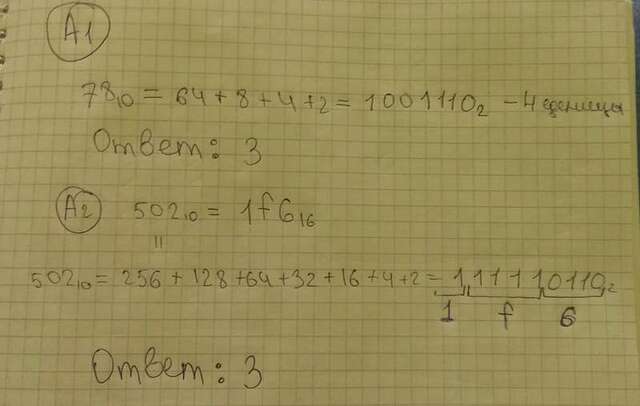 А1
78₁₀ = 64 + 8 + 4 + 2 = 1001110₂ - 4 единицы
Ответ: 3
А2 502₁₀ = 1f6₁₆
=
502₁₀ = 256 + 128 + 64 + 32 + 16 + 4 + 2 = 111110110₂
1 f 6
Ответ: 3